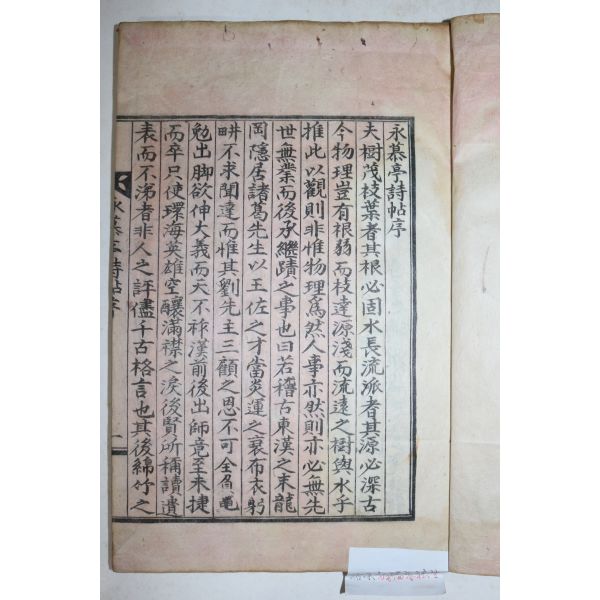 永慕亭詩帖序
夫樹茂枝葉者其根必固水長流派者其源必深古
今物理豈有根弱而枝達源淺而流遠之樹與水乎
推此以觀則非惟物理爲然人事亦然則亦必無先
世無業而後承繼蹟之事也曰若稽古東漢之末龍
岡隱居諸葛先生以王佐之才當炎運之衰布衣躬
畊不求聞達而惟其劉先主三顧之恩不可全負黽
勉出脚欲伸大義而天不祚漢前後出師竟至未捷
而卒只使環海英雄空釀滿襟之淚後賢所稱讀遺
表而不涕者非人之評儘千古格言也其後綿竹之
永慕亭詩帖序
一